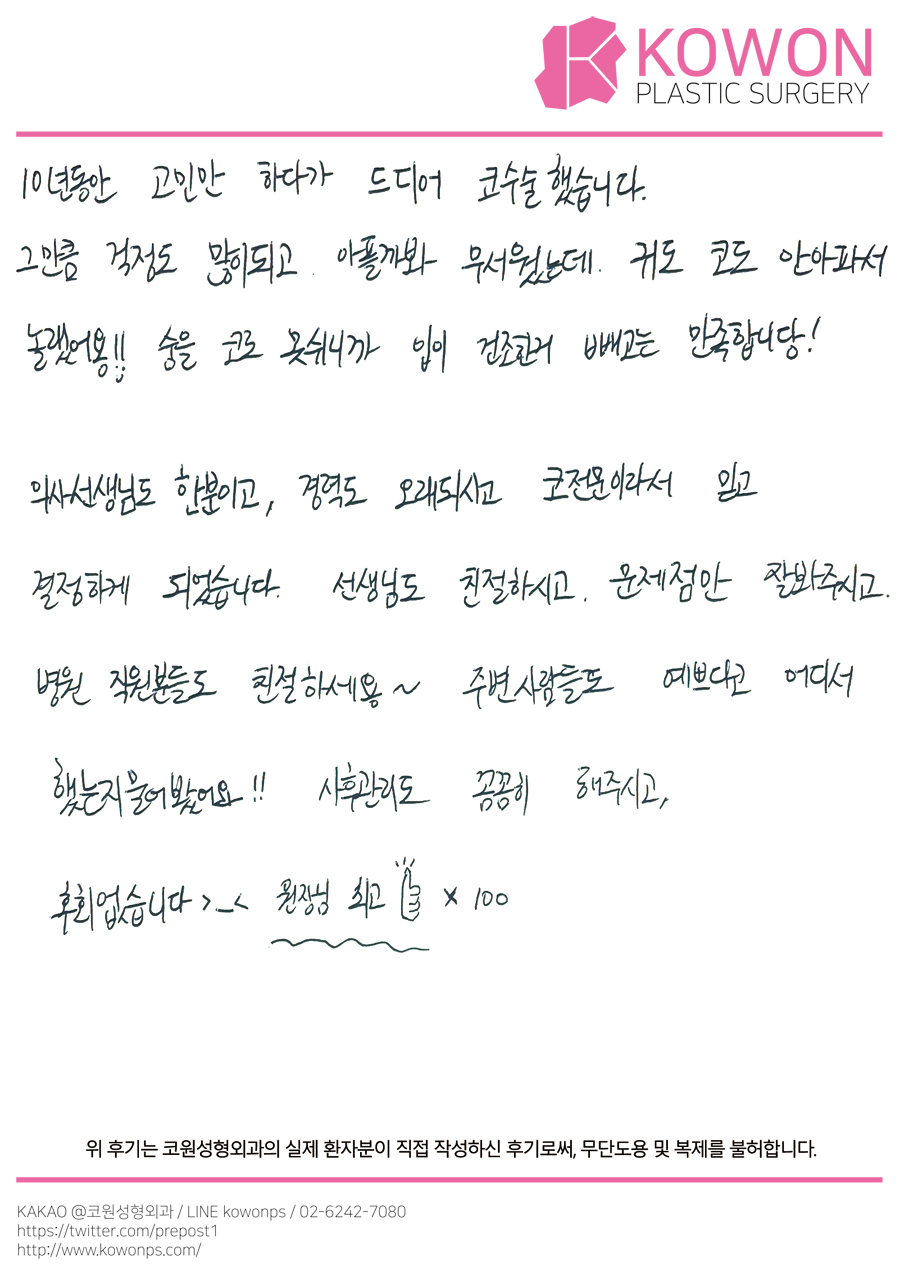 KOWON
PLASTIC SURGERY
10년동안 고민만 하다가 드디어 코수술했습니다.
그만큼 걱정도 많이되고. 아플까봐 무서웠는데. 귀도 코도 안아파서
놀랬어용!! 숨을 코로 못쉬니까 입이 건조한거 빼고는 만족합니당!
의사선생님도 한분이고, 경력도 오래되시고 코전문이라서 믿고
결정하게 되었습니다. 선생님도 친절하시고. 문제점만 잘봐주시고.
병원 직원분들도 친절하세용~ 주변사람들도 예쁘다고 어디서
했는지 물어봤어요!! 사후관리도 꼼꼼히 해주시고,
후회없습니다 >_< 원장님 최고 × 100
위 후기는 코원성형외과의 실제 환자분이 직접 작성하신 후기로써, 무단도용 및 복제를 불허합니다.
KAKAO @코원성형외과 / LINE kowonps / 02-6242-7080
https://twitter.com/prepost1
http://www.kowonps.com/